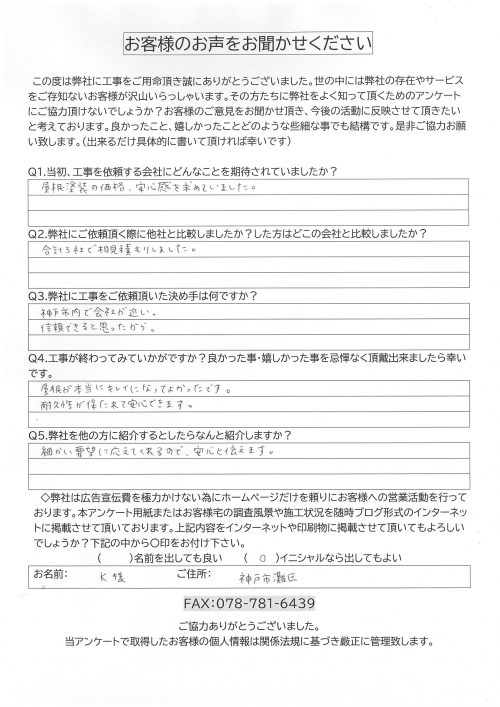 お客様のお声をお聞かせください
この度は弊社に工事をご用命頂き誠にありがとうございました。世の中には弊社の存在やサービス
をご存知ないお客様が沢山いらっしゃいます。その方たちに弊社をよく知って頂くためのアンケート
にご協力頂けないでしょうか?お客様のご意見をお聞かせ頂き、今後の活動に反映させて頂きたい
と考えております。良かったこと、嬉しかったことどのような些細な事でも結構です。是非ご協力お願
い致します。(出来るだけ具体的に書いて頂ければ幸いです)
Q1.当初、工事を依頼する会社にどんなことを期待されていましたか?
屋根塗装の価格、安心感を求めていました。
Q2.弊社にご依頼頂く際に他社と比較しましたか?した方はどこの会社と比較しましたか?
合計3社で相見積もりしました。
Q3.弊社に工事をご依頼頂いた決め手は何ですか?
神戸市内で会社が近い。
信頼できると思ったから。
Q4.工事が終わってみていかがですか?良かった事・嬉しかった事を忌憚なく頂戴出来ましたら幸い
です。
屋根が本当にキレイになってよかったです。
耐久性が保たれて安心できます。
Q5.弊社を他の方に紹介するとしたらなんと紹介しますか?
細かい要望に応えてくれるので、安心と伝えます。
◇弊社は広告宣伝費を極力かけない為にホームページだけを頼りにお客様への営業活動を行って
おります。本アンケート用紙またはお客様宅の調査風景や施工状況を随時ブログ形式のインターネッ
トに掲載させて頂いております。上記内容をインターネットや印刷物に掲載させて頂いてもよろしい
でしょうか?下記の中から〇印をお付け下さい。
( )名前を出しても良い ( O )イニシャルなら出してもよい
お名前: K 様 ご住所: 神戸市灘区
FAX:078-781-6439
ご協力ありがとうございました。
当アンケートで取得したお客様の個人情報は関係法規に基づき厳正に管理致します。